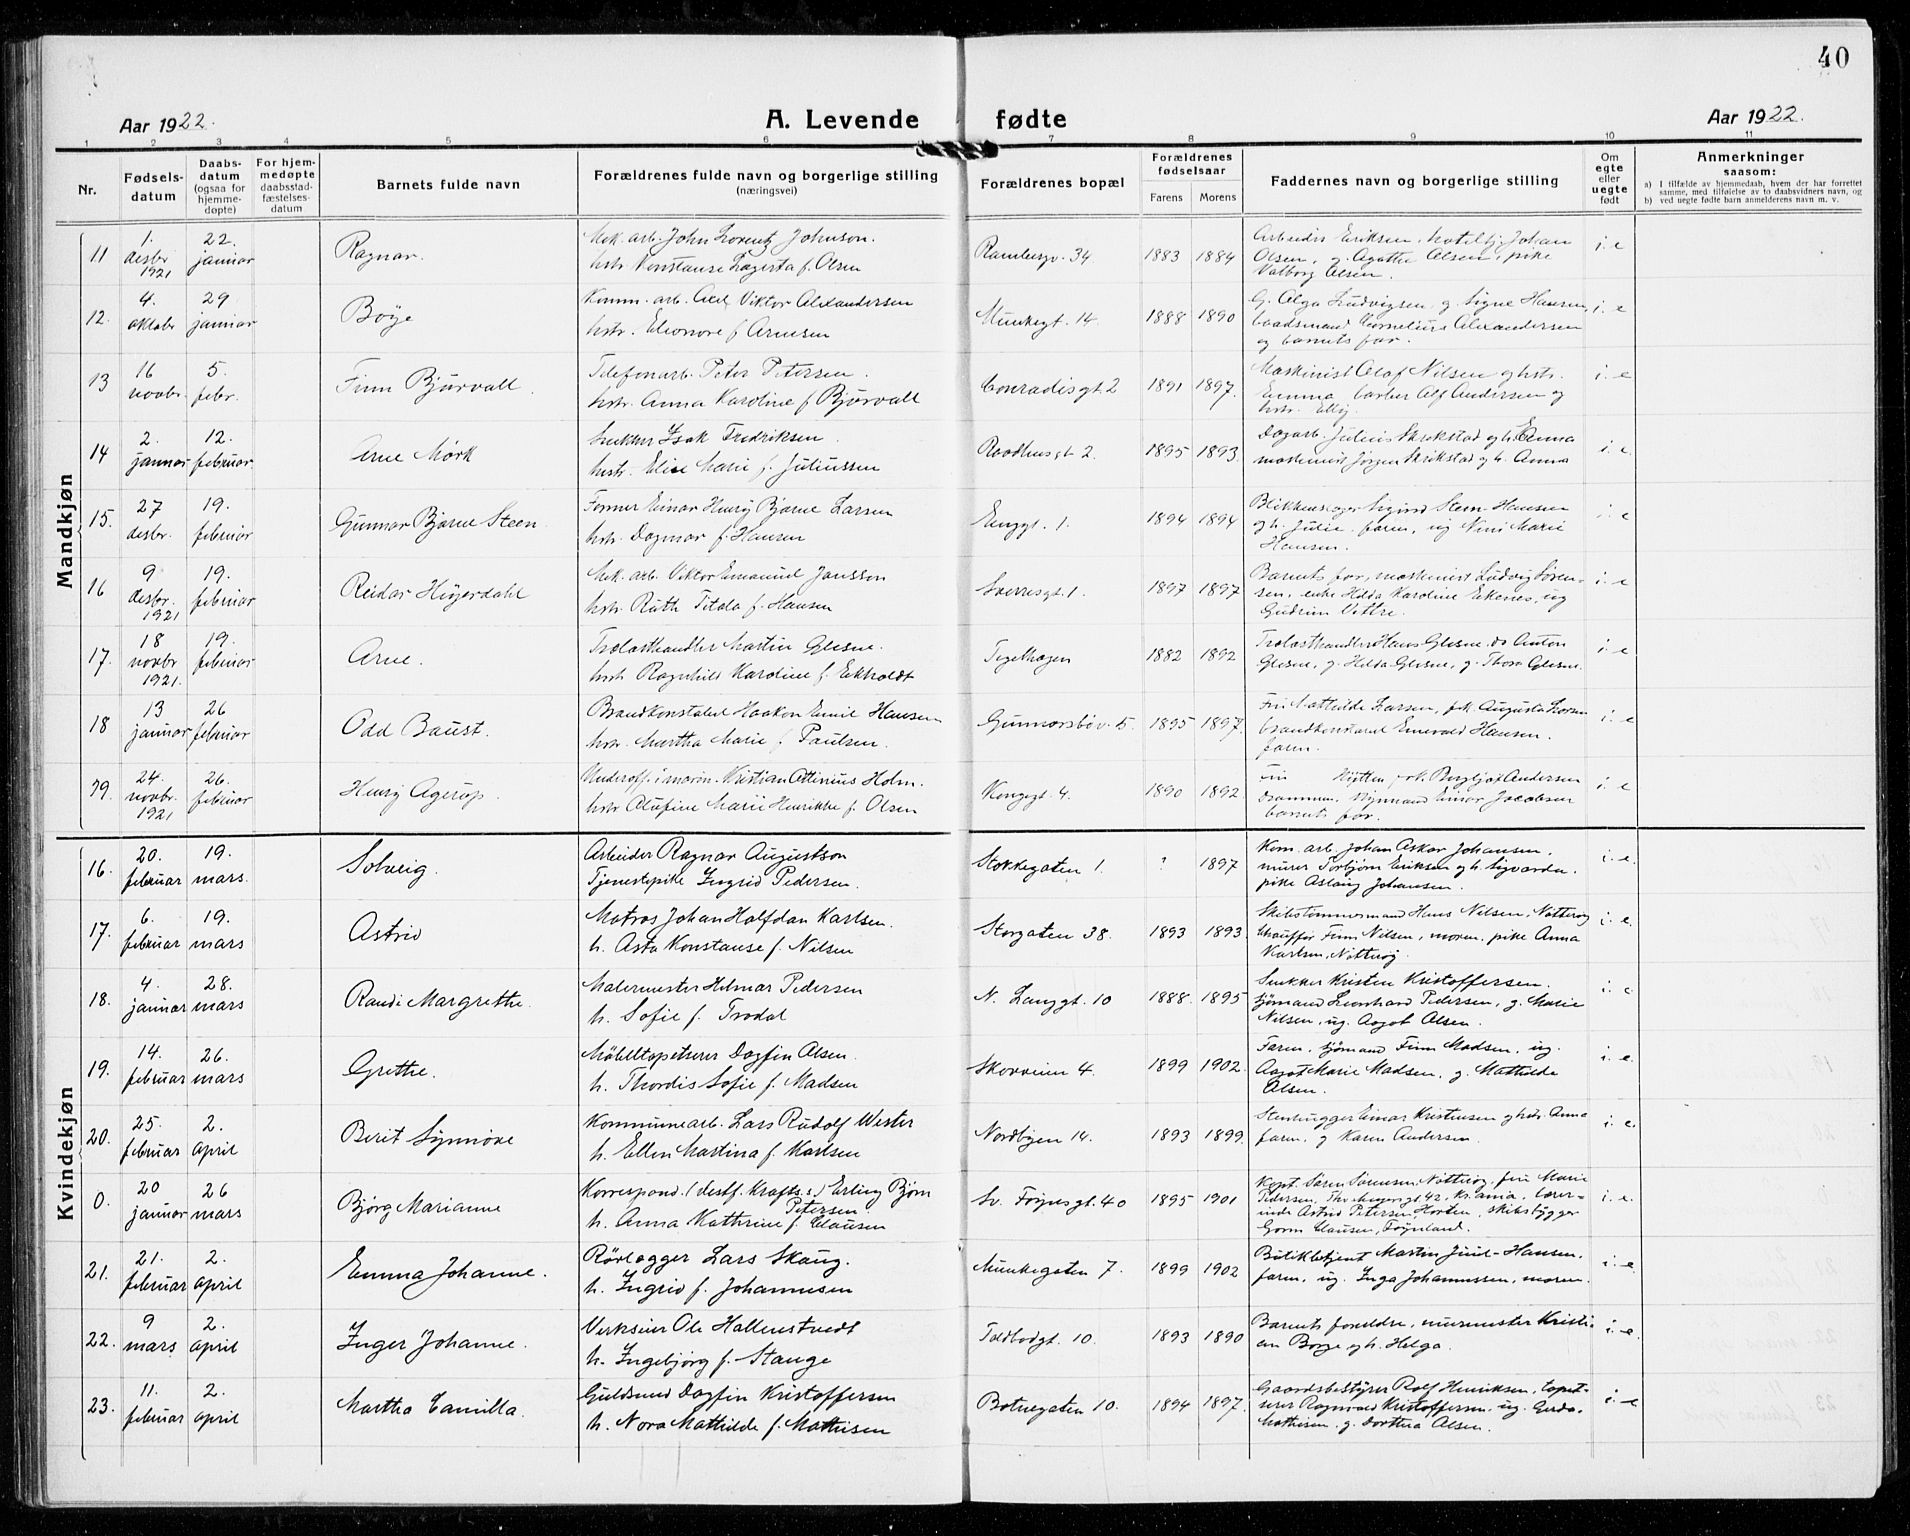 40
Aar 1922.
A. Levende fødte
Aar 1922.
1 2 3 4 5 6 7 8 9 10 11
Nr.
Fødsels-
datum
Daabs-
datum
(ogsaa for
hjemme-
døpte)
For hjem-
medøpte
daabsstad-
fæstelses-
datum
Barnets fulde navn
Forældrenes fulde navn og borgerlige stilling
(næringsvei)
Forældrenes bopæl
Forældrenes
fødselsaar
Farens
Morens
Faddernes navn og borgerlige stilling
Om
egte
eller
uegte
født
Anmerkninger
saasom:
a) I tilfælde av hjemmedaab, hvem der har forrettet
samme, med tilføielse av to daabsvidners navn, og
b) ved uegte fødte barn anmelderens navn m. v.
Mandkjøn
11
1. desbr 1921
22. januar
Ragnar.
Mek. arb. John Lorentz Johnson.
hstr. Konstanse Lagerta f. Olsen
Rambergv. 34
1883 1884
Arbeider Eriksen, Johan
Olsen, g. Agathe Olsen, pike
Valborg Olsen.
i. e
12.
4. oktobr
29 januar
Böye
Komm. arb. Axel Viktor Alexandersen
hstr. Eleonore f Arnesen
Munkegt. 14.
1888 1890
G. Olga Ludvigsen, g. Signe Hansen,
baadsmand Kornelius Alexandersen
og barnets far.
i. e
13
16 novbr.
5. febr.
Finn Bjürvall
Telefonarb. Peter Petersen.
hstr. Anna Karoline f Bjürvall
Conradisgt. 2
1891 1897.
Maskinist Olaf Nilsen og hstr.
Emma, barber Alf Andersen og
hstr. Elly.
i. e
14
2. januar
12. februar.
Arne Mörk
Snekker Isak Fredriksen.
hustr. Elise Marie f. Juliussen
Raadhusgt 2.
1895 1893.
Dagarb. Julius Skrikstad og h. Emma
maskinist Jörgen Skrikstad og h. Anna
i. e.
15.
27 desbr.
19. februar
Gunnar Bjarne Steen.
Former Einar Henry Bjarne Larsen
hstr. Dagmar f. Hansen
Enggt. 1.
1894 1894
Blikkenslager Sigurd Steen Hansen
og h. Julie, faren, ug Nini Marie
Hansen.
i. e
16
9 desbr. 1921
19. februar
Reidar Högerdahl
Mek. arb. Viktor Emanuel Jansson
hstr. Ruth Titda f. Hansen
Sverresgt. 1.
1897 1897
Barnets far, maskinist Ludvig Sören-
sen, enke Hilda Karoline Ekenes, ug
Gudrun Vittre.
i. e
17.
18 novbr 1921.
19. februar
Arne.
Trælasthandler Martin Glesne.
hstr Ragnhild Karoline f. Ekholdt
Teglhagen
1882 1892
Trælasthandler Hans Glesne, do Anton
Glesne, g. Hilda Glesne, g. Thora Glesne.
i. e
18
13 januar
26 februar
Odd Baust.
Brandkonstabel Haakon Emil Hansen
hstr. Martha Marie f Paulsen.
Gunnarsböv. 5
1895 1897.
Fru Mathilde Larsen, frk. Augusta Larsen
brandkonstabel Emerald Hansen.
faren.
i. e
19.
24. novbr. 1921
26. februar
Henry Agerup.
Underoff. i marin. Kristian Attinius Holm.
hstr Olufine Marie Henrikke f. Olsen
Kongegt. 4.
1890 1892.
Fru Hytten, frk. Bergljot Andersen
Drammen, styrmand Einar Jacobsen
barnets far.
i. e
Kvindekjøn
16.
20. februar
19. mars.
Solveig.
Arbeider Ragnar Augustson
Tjenestepike Ingrid Pedersen.
Stokkegaten 1.
? 1897
Kom. arb. Johan Askar Johansen,
murer Torbjörn Eriksen og h. Sigvarda.
pike Aslaug Johansen.
i. e.
17.
6. februar
19. mars
Astrid
Matros Johan Halfdan Karlsen.
h. Asta Konstanse f. Nilsen
Storgaten 38.
1893 1893.
Skibstömmermand Hans Nilsen, Nötteröy
Chauffør Finn Nilsen, moren, pike Anna
Karlsen, Nötteröy.
i. e.
18.
4. januar
28. mars
Randi Margrethe.
Malermester Helmar Pedersen
h. Sofie f. Trodal
N. Langgt. 10
1888. 1895
Snekker Kristen Kristoffersen.
sjömand Leonhard Pedersen, g. Marie
Nilsen, ug. Aagot Olsen.
i. e
19.
14. februar
26. mars
Grethe.
Möbeltapetserer Dagfin Olsen.
h. Thordis Sofie f. Madsen
Skovveien 4.
1899 1902.
Faren, sjömand Finn Madsen, ug.
Aagot Marie Madsen, g. Mathilde
Olsen.
i. e.
20.
25. februar
2. april
Berit Synnöve
Kommunearb. Lars Rudolf Wester
h. Ellen Martina f. Karlsen
Nordbyen 14.
1893 1899.
Stenhugger Einar Kristensen og hstr. Anna
faren, g Karen Andersen.
i. e.
0.
20 januar
26 mars
Bjørg Marianne
Korrespond. (Vestf. Krafts.s.) Erling Bjørn
Petersen
h. Anna Kathrine f. Clausen
Sv. Foynsgt. 40
1895 1901
Kapt. Sören Sörensen Nötteröy, fru Marie
Pedersen, 42, Kr.ania, lærer-
inde Astrid Petersen Horten, skibsbygger
Gorm Clausen, Föynland.
i. e.
21.
21. februar
2. april
Emma Johanne.
Rörlægger Lars Skaug.
h. Ingrid f. Johannesen
Munkegaten 7.
1899 1902
Butikbetjent Martin Juul-Hansen.
faren, ug. Inga Johannessen, moren.
i. e.
22.
9 mars
2. april
Inger Johanne.
Verkseier Ole Hallenstvedt
h. Ingebjörg f. Stange
Toldbodgt. 10.
1893 1890
Barnets foreldre, murmester Kristi-
an Borge og h. Helga.
i. e.
23.
11. februar
2. april
Martha Camilla.
Guldsmed Dagfin Kristoffersen
h. Nora Mathilde f. Mathisen
Botnegaten 10.
1894 1897.
Gaardsbestyrer Rolf Henriksen, tapet-
serer Ragnvald Kristoffersen, ug. Gerda
Mathisen, g. Dorthea Olsen.
i. e